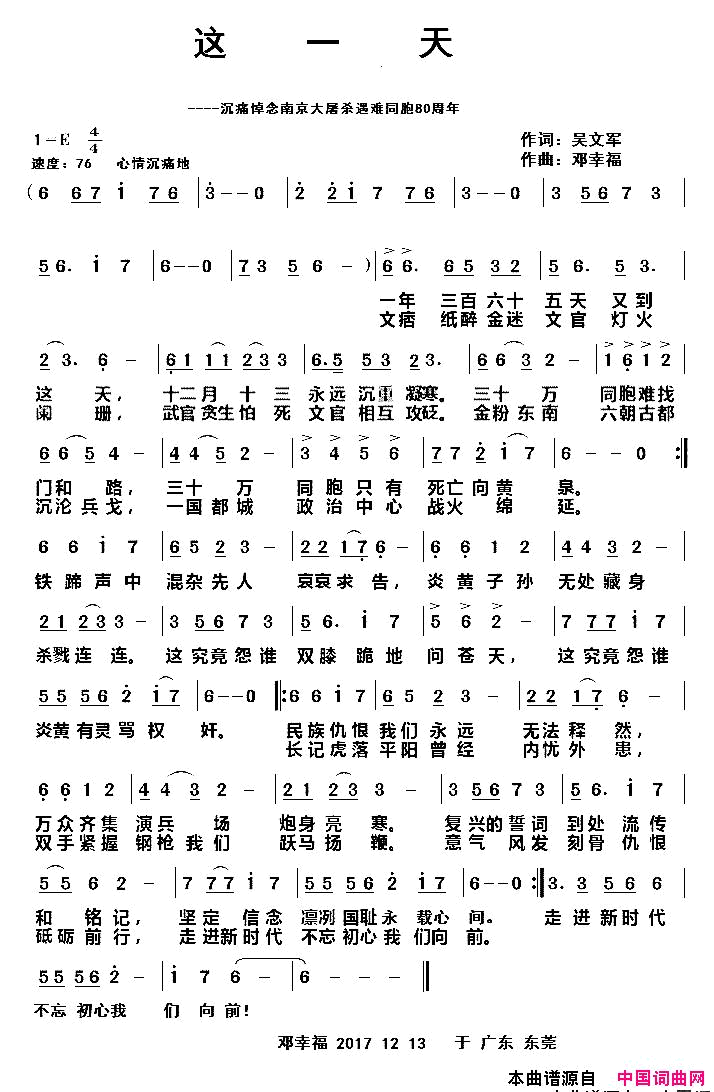 这 一 天
----沉痛悼念南京大屠杀遇难同胞80周年
1=E 4/4 作词：吴文军
速度：76 心情沉痛地 作曲：邓幸福
( 6 67 i 76 | 3--0 | 2 2i 7 76 | 3--0 | 3 56 7 3 |
56. i 7 | 6--0 | 73 56 - ) | 66. 65 32 | 5. 6. 53. |
一年 三百六十 五天 又到
文痞 纸醉金迷 文官 灯火
23. 6 - | 61 11 223 3 | 6.5 53 23. | 66 3 2 - | 1 6 1 2 |
这 天， 十二月 十 三 永远 沉重 凝寒。 三十 万 同胞难找
阑 珊， 武官贪生怕 死 文官 相互 攻砭。 金粉 东南 六朝古都
66 5 4 - | 44 5 2 - | 3 4 5 6 | 77 2 i 7 | 6 - - 0 :||
门和 路， 三十 万 同胞只有 死亡向黄 泉。
沉沦兵戈， 一国都城 政治中心 战火 绵 延。
6 6 i 7 | 65 2 3 - | 22 176 - | 6 6 1 2 | 44 3 2 - |
铁 蹄声中 混杂先人 哀哀求 告， 炎黄子孙 无处藏身
21 23 3 - | 3 56 7 3 | 56. i 7 | 5 6 2 - | 7 77 i 7 |
杀戮连 连。 这究竟怨谁 双膝 跪地 问苍天， 这究竟怨谁
55 56 2 i7 | 6--0 ||: 66 i 7 | 65 2 3 - | 22 17 6 - |
炎黄有灵骂 权 奸。 民族仇恨我们永远 无法释 然，
长记虎落平阳曾经 内忧外 患，
6 6 1 2 | 44 3 2 - | 21 23 3 - | 3 5673 | 56. i 7 |
万众齐集 演兵 场 炮身亮 寒。 复兴的誓词 到处 流传
双手紧握 钢枪我们 跃马扬 鞭。 意气 风发 刻骨 仇恨
5 56 2 - | 7 77 i 7 | 55 56 2 i7 | 6--0 :|| 3. 56 73 |
和 铭记， 坚定 信念 凛冽国耻永 载心 间。 走进新时代
砥砺前行， 走进新时代 不忘初心我们向 前。
55 56 2 - | i 7 6 6 - | 6 - - - ||
不忘 初心我 们 向 前！
邓幸福 2017 12 13 于 广东 东莞
本曲谱源自 中国词曲网